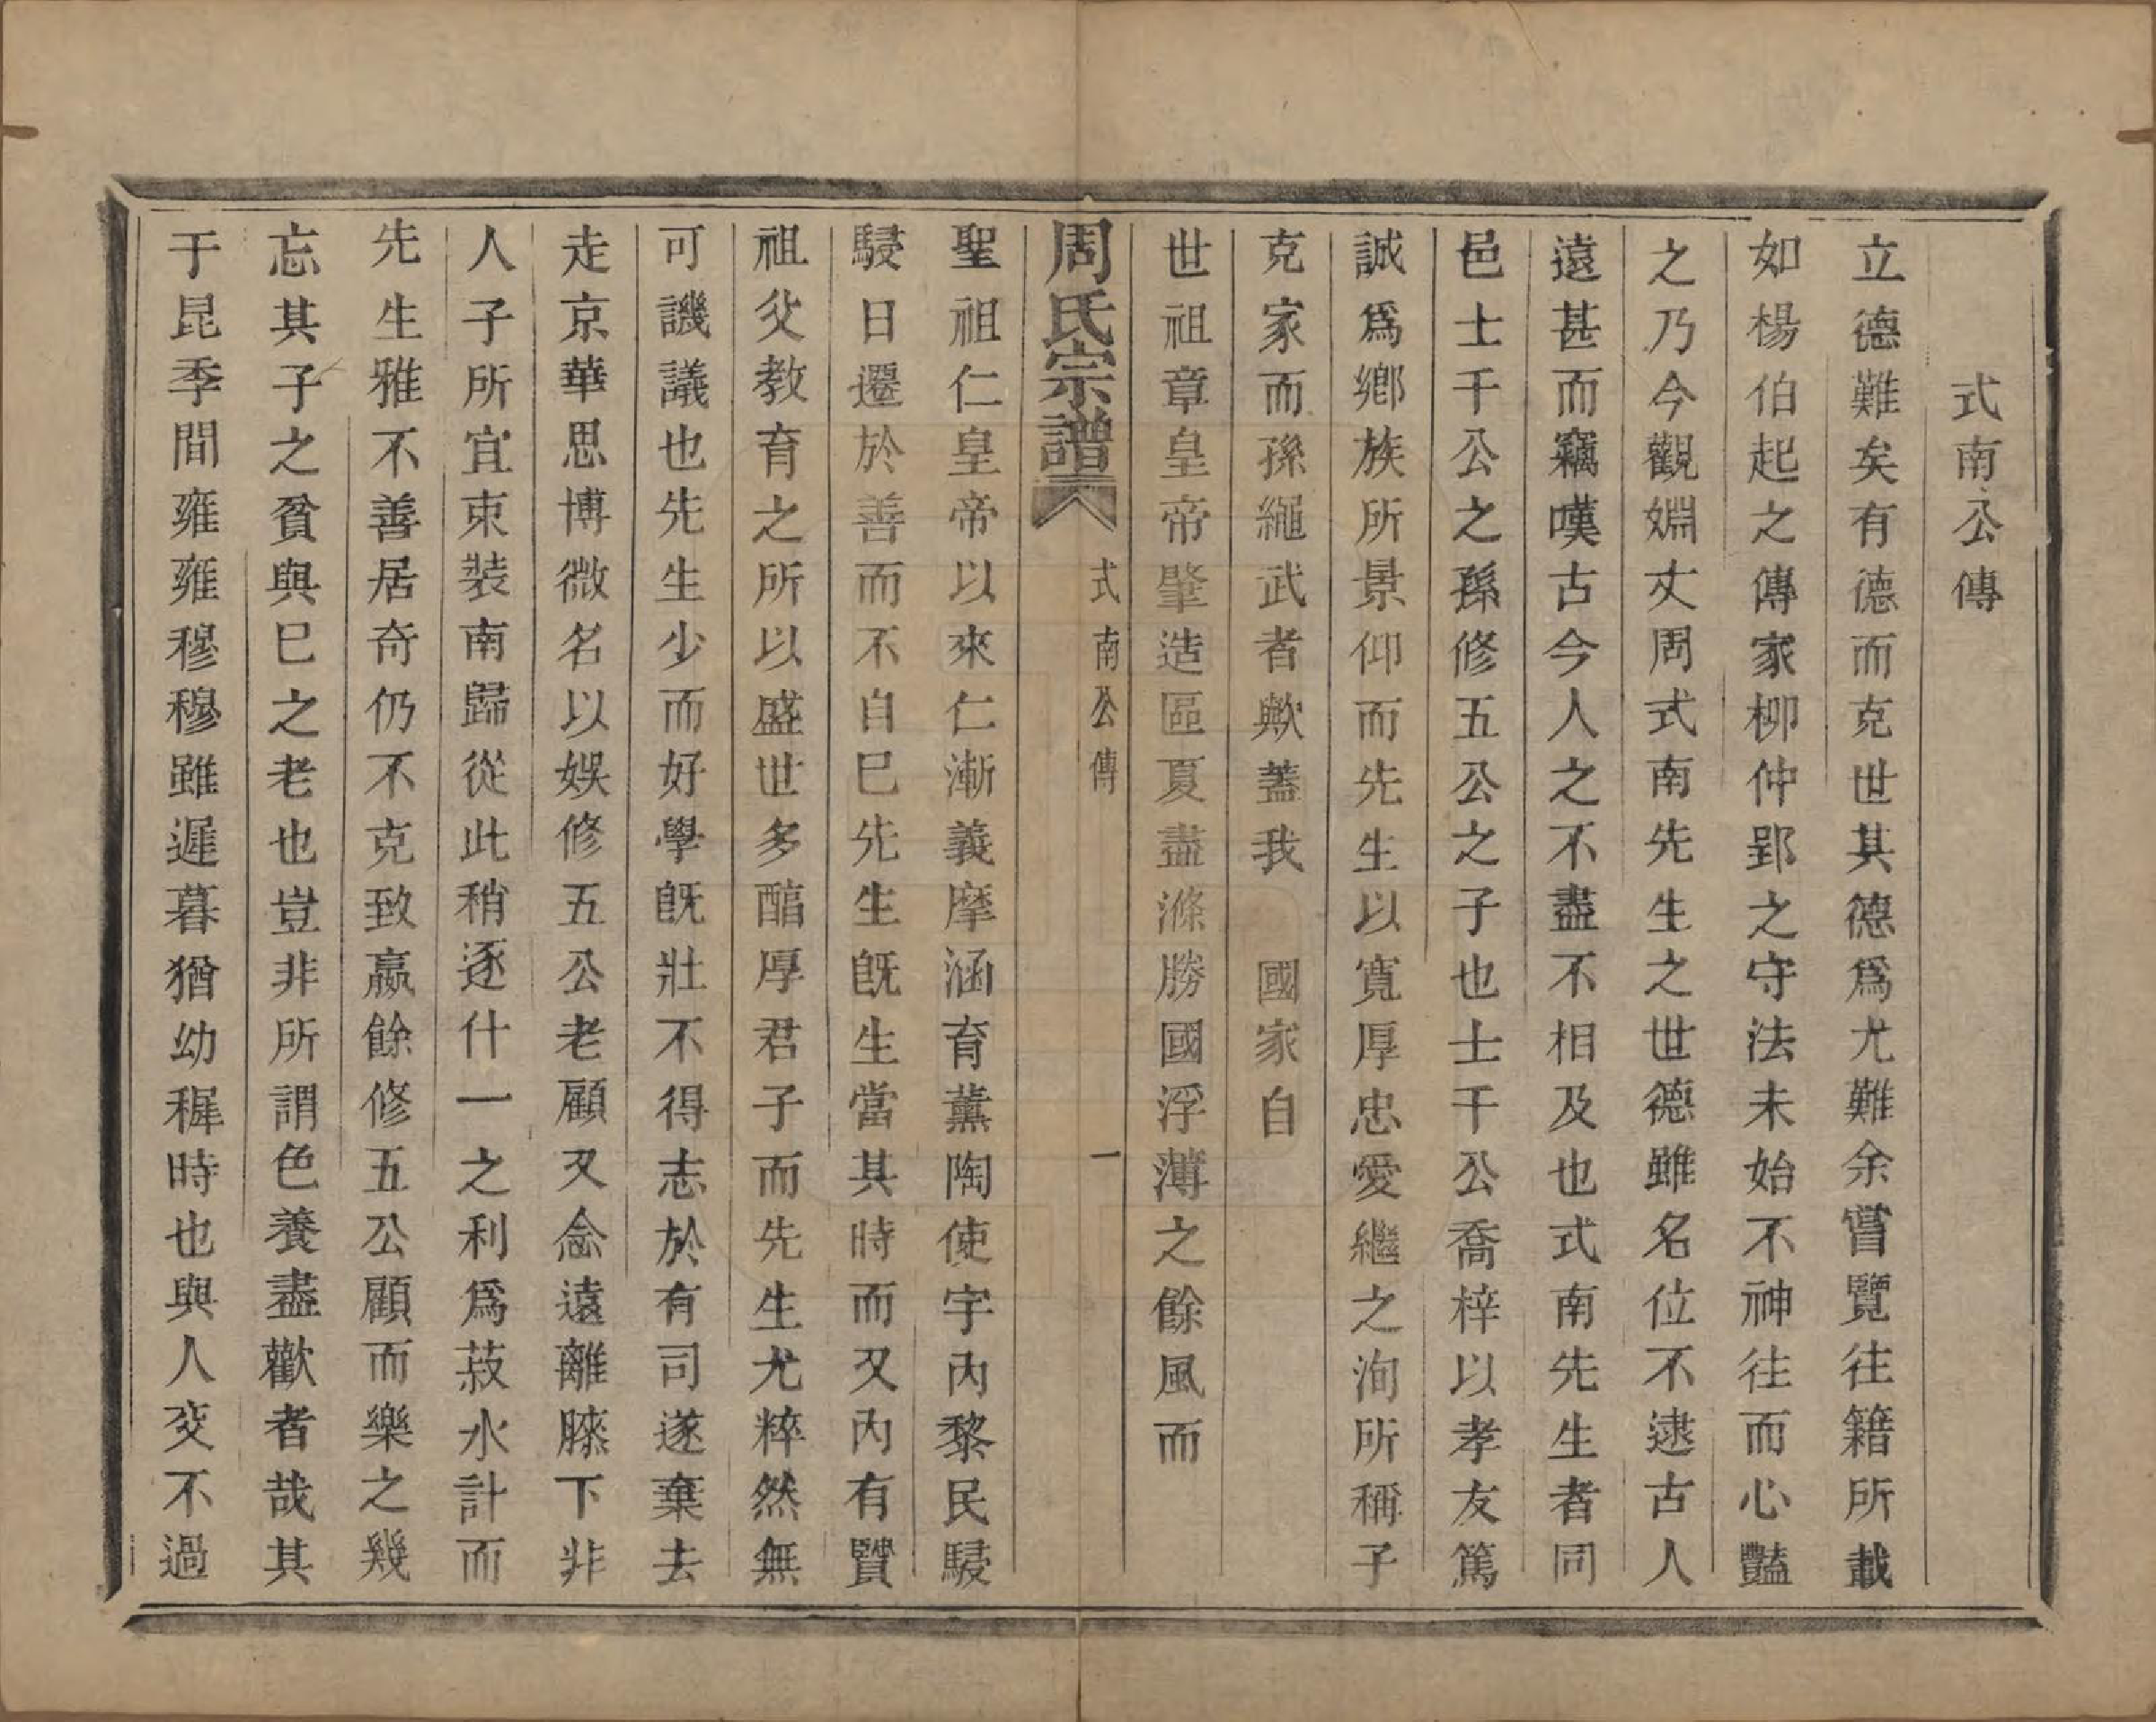 式南公傳
立德難矣有德而克世其德爲尤難余嘗覽往籍所載
如楊伯起之傳家柳仲郢之守法未始不神往而心豔
之乃今觀姻丈周式南先生之世德雖名位不逮古人
遠甚而竊嘆古今人之不盡不相及也式南先生者同
邑士千公之孫修五公之子也士千公喬梓以孝友篤
誠爲鄉族所景仰而先生以寬厚忠愛繼之洵所稱子
克家而孫繩武者歟蓋我 國家自
世祖章皇帝肇造區夏盡滌勝國浮薄之餘風而
周氏宗譜 式南公傳 一
聖祖仁皇帝以來仁漸義摩涵育薰陶使宇內黎民駸
駸日遷於善而不自已先生旣生當其時而又內有賢
祖父教育之所以盛世多醕厚君子而先生尤粹然無
可譏議也先生少而好學旣壯不得志於有司遂棄去
走京華思博微名以娛修五公老顧又念遠離膝下非
人子所宜束裝南歸從此稍逐什一之利爲菽水計而
先生雅不善居奇仍不克致嬴餘修五公顧而樂之幾
忘其子之貧與已之老也豈非所謂色養盡歡者哉其
于昆季間雍雍穆穆雖遲暮猶幼穉時也與人交不過